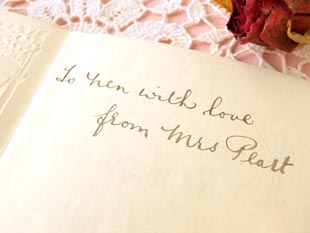 To Nen with love
from Mrs Peart